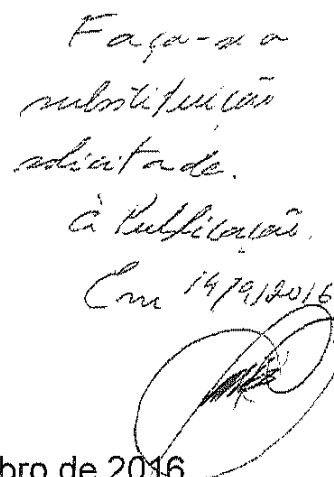 Faça-se a
substituição
solicitada.
À Publicação.
Em 14/9/2016
bro de 2016